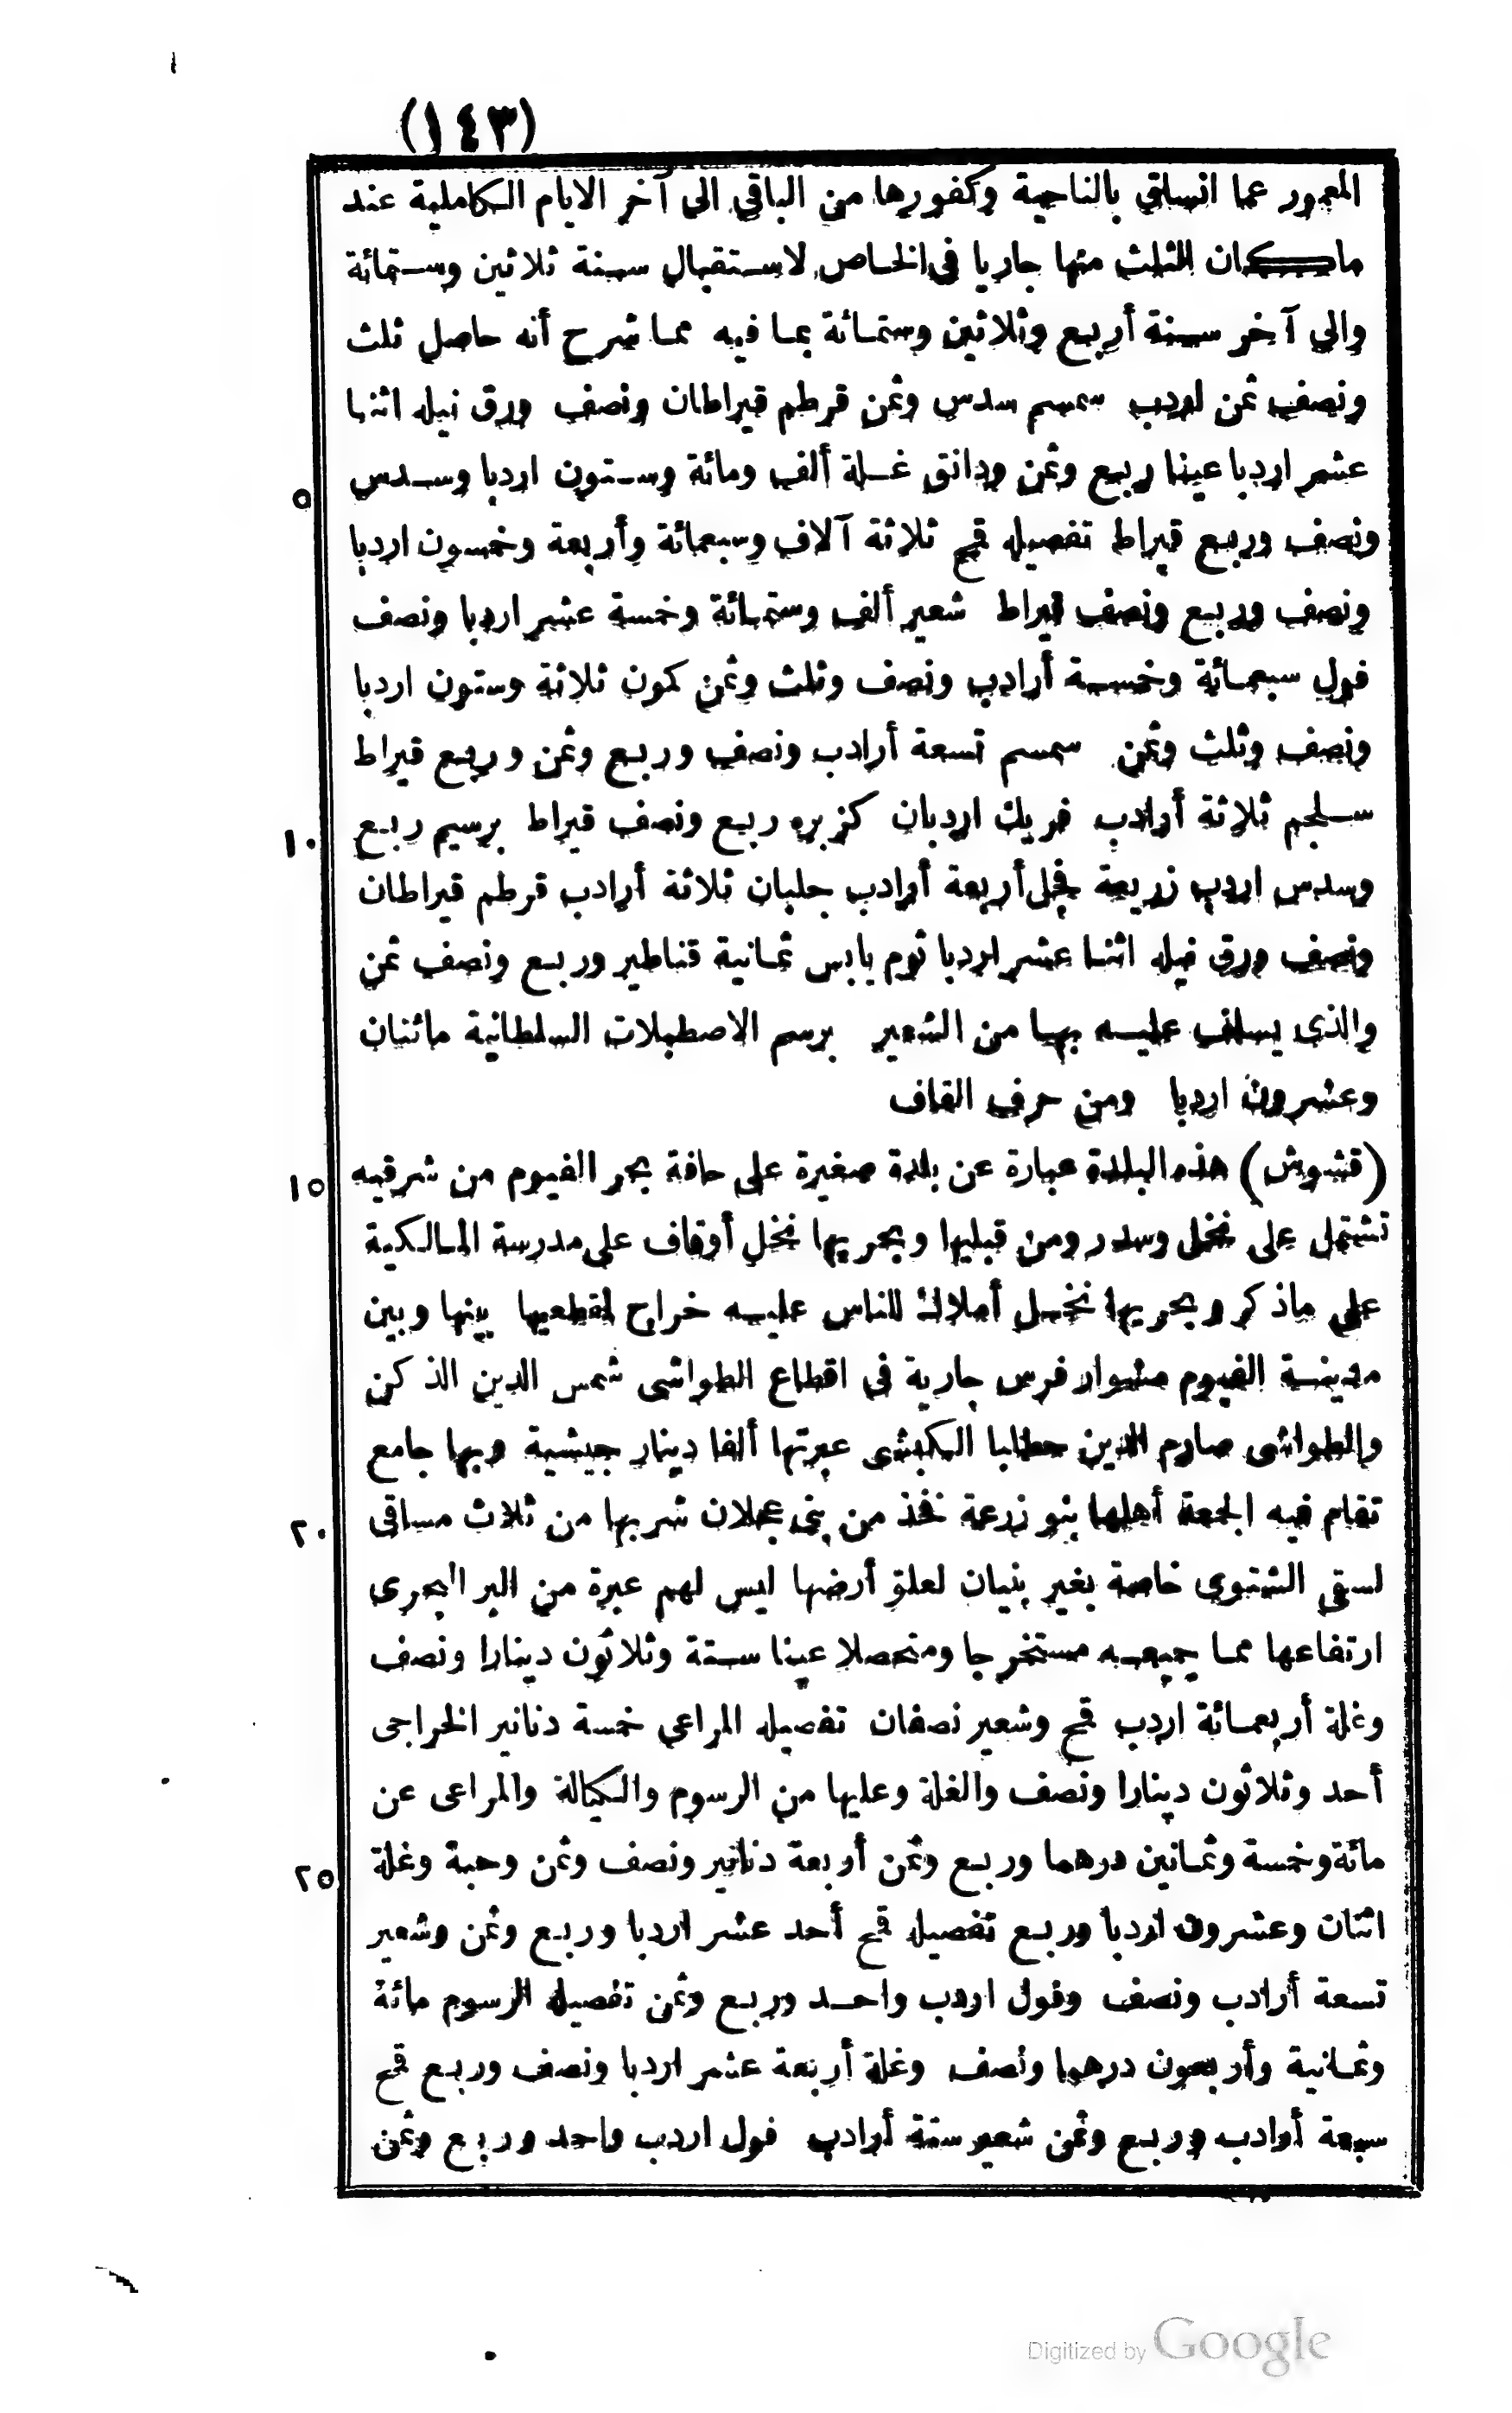 (١٤٣)
المعمور عما انساق بالناحية وكفورها من الباقى الى آخر الايام الكاملية عند
ما كان الثلث منها جاريا فى الخاص لاستقبال سنة ثلاثين وستمائة
والى آخر سنة أربع وثلاثين وستمائة بما فيه مما شرح أنه حاصل ثلث
ونصف ثمن اردب سمسم سدس وثمن قرطم قيراطان ونصف ورق نيله اثنا
عشر اردبا عينا ربع وثمن ودانق غلة ألف ومائة وستون اردبا وسدس
٥
ونصف وربع قيراط تفصيله قمح ثلاثة آلاف وسبعمائة وأربعة وخمسون اردبا
ونصف وربع ونصف قيراط شعير ألف وستمائة وخمسة عشر اردبا ونصف
فول سبعمائة وخمسة أرادب ونصف وثلث وثمن كمون ثلاثة وستون اردبا
ونصف وثلث وثمن سمسم تسعة أرادب ونصف وربع وثمن وربع قيراط
سلجم ثلاثة أرادب فريك اردبان كزبره ربع ونصف قيراط برسيم ربع
١٠
وسدس اردب زريعة فجل أربعة أرادب جلبان ثلاثة أرادب قرطم قيراطان
ونصف ورق نيله اثنا عشر اردبا ثوم يابس ثمانية قناطير وربع ونصف ثمن
والذى يسلف عليه بها من الشعير برسم الاصطبلات السلطانية مائتان
وعشرون اردبا ومن حرف القاف
(قشوش) هذه البلدة عبارة عن بلدة صغيرة على حافة بحر الفيوم من شرقيه
١٥
تشتمل على نخل وسدر ومن قبليها وبحريها نخل أوقاف على مدرسة المالكية
على ماذكر وبحريها نخل أملاك للناس عليه خراج لمقطعيها بينها وبين
مدينة الفيوم مشوار فرس جارية فى اقطاع الطواشى شمس الدين الذكن
والطواشى صارم الدين خطلبا الكبشى عبرتها ألفا دينار جيشية وبها جامع
تقام فيه الجمعة أهلها بنو زرعة فخذ من بنى عجلان شربها من ثلاث مساقى
٢٠
لسقى الشتوى خاصة بغير بنيان لعلو أرضها ليس لهم عبرة من البر البحرى
ارتفاعها مما جميعه مستخرجا ومتحصلا عينا ستة وثلاثون دينارا ونصف
وغلة أربعمائة اردب قمح وشعير نصفان تفصيله المراعى خمسة دنانير الخراجى
أحد وثلاثون دينارا ونصف والغلة وعليها من الرسوم والكيالة والمراعى عن
مائة وخمسة وثمانين درهما وربع وثمن أربعة دنانير ونصف وثمن وحبة وغلة
٢٥
اثنان وعشرون اردبا وربع تفصيله قمح أحد عشر اردبا وربع وثمن وشعير
تسعة أرادب ونصف وفول اردب واحد وربع وثمن تفصيله الرسوم مائة
وثمانية وأربعون درهما ونصف وغلة أربعة عشر اردبا ونصف وربع قمح
سبعة أرادب وربع وثمن شعير ستة أرادب فول اردب واحد وربع وثمن
Digitized by Google